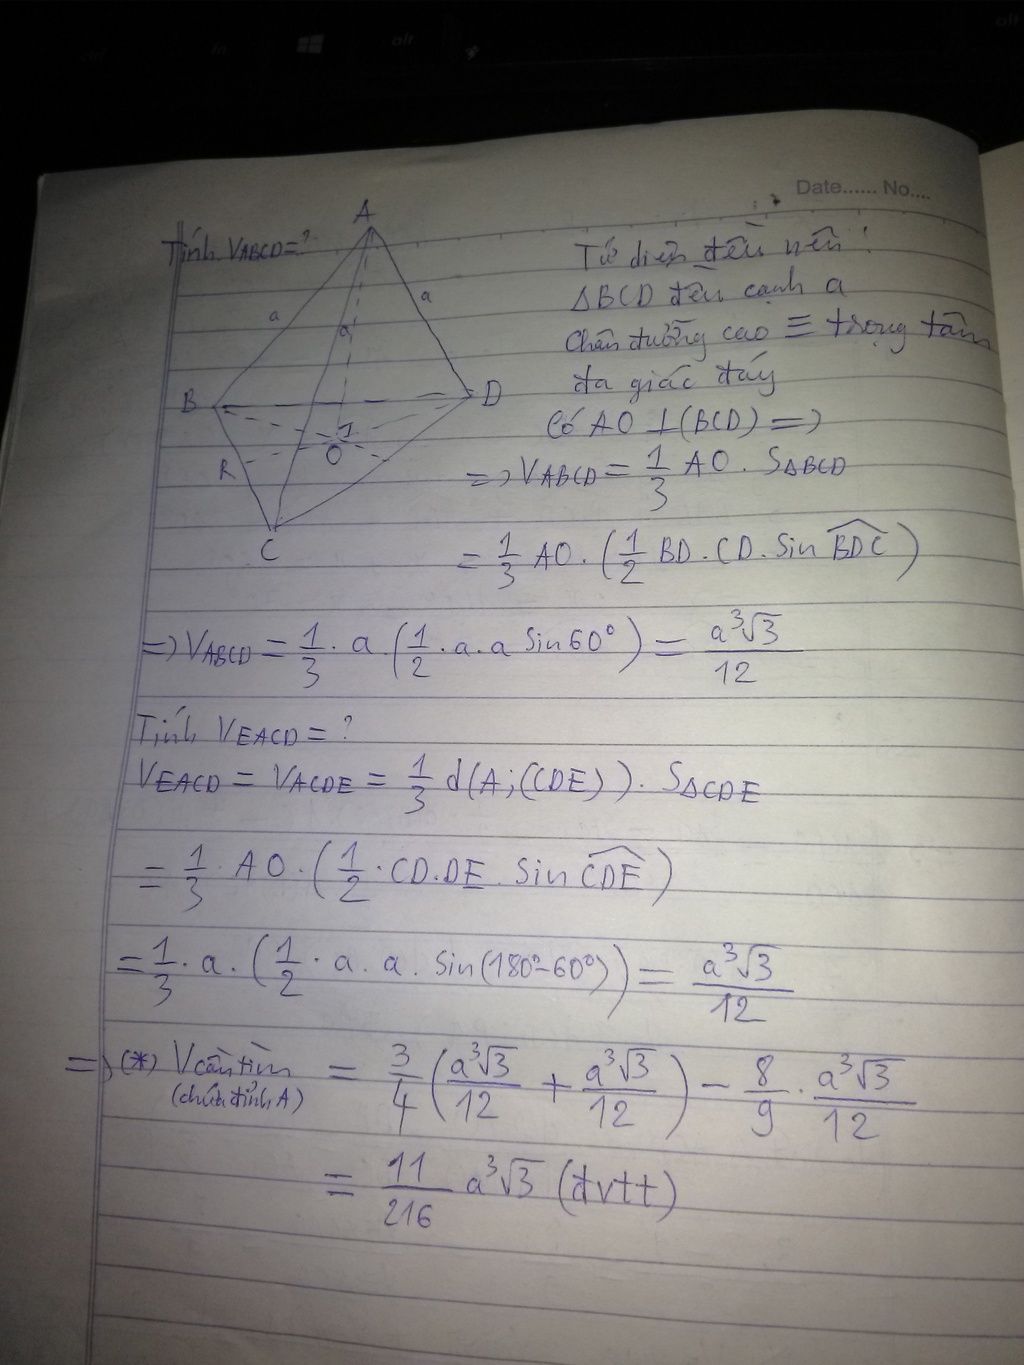 Date...... No....
Tính VABCD = ?
A
a
a
a
B
D
R
O
C
Tứ diện đều nên:
ΔBCD đều cạnh a
Chân đường cao ≡ trọng tâm
đa giác đáy
Có AO ⊥ (BCD) =>
=> VABCD = 1/3 AO . SΔBCD
= 1/3 AO . (1/2 BD . CD . Sin BDC)
=> VABCD = 1/3 . a . (1/2 . a . a Sin 60°) = a³√3/12
Tính VEACD = ?
VEACD = VACDE = 1/3 d(A; (CDE)) . SΔCDE
= 1/3 . AO . (1/2 . CD . DE . Sin CDE)
= 1/3 . a . (1/2 . a . a . Sin(180° - 60°)) = a³√3/12
=> (*) V cần tìm = 3/4 (a³√3/12 + a³√3/12) - 8/9 . a³√3/12
(chứa đỉnh A)
= 11/216 a³√3 (đvtt)